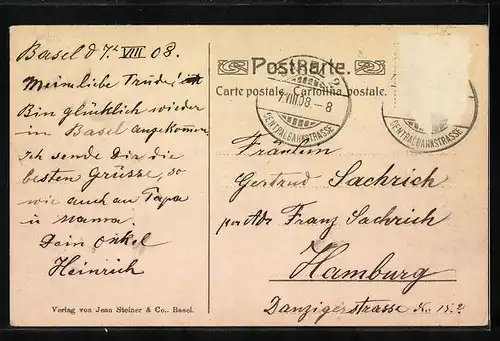 Basel d 7. VIII 08.
Mein liebe Trude!
Bin glücklich wieder
in Basel angekommen
Ich sende Dir die
besten Grüsse, so
wie auch an Papa
u Mama.
Dein Onkel
Heinrich
Verlag von Jean Steiner & Co., Basel.
Postkarte.
Carte postale. Cartolina postale.
7.VIII.08 - 8
CENTRALBAHNSTRASSE
CENTRALBAHNSTRASSE
Fräulein
Gertrud Sachrich
per Adr Franz Sachrich
Hamburg
Danzigerstrasse N. 15.2